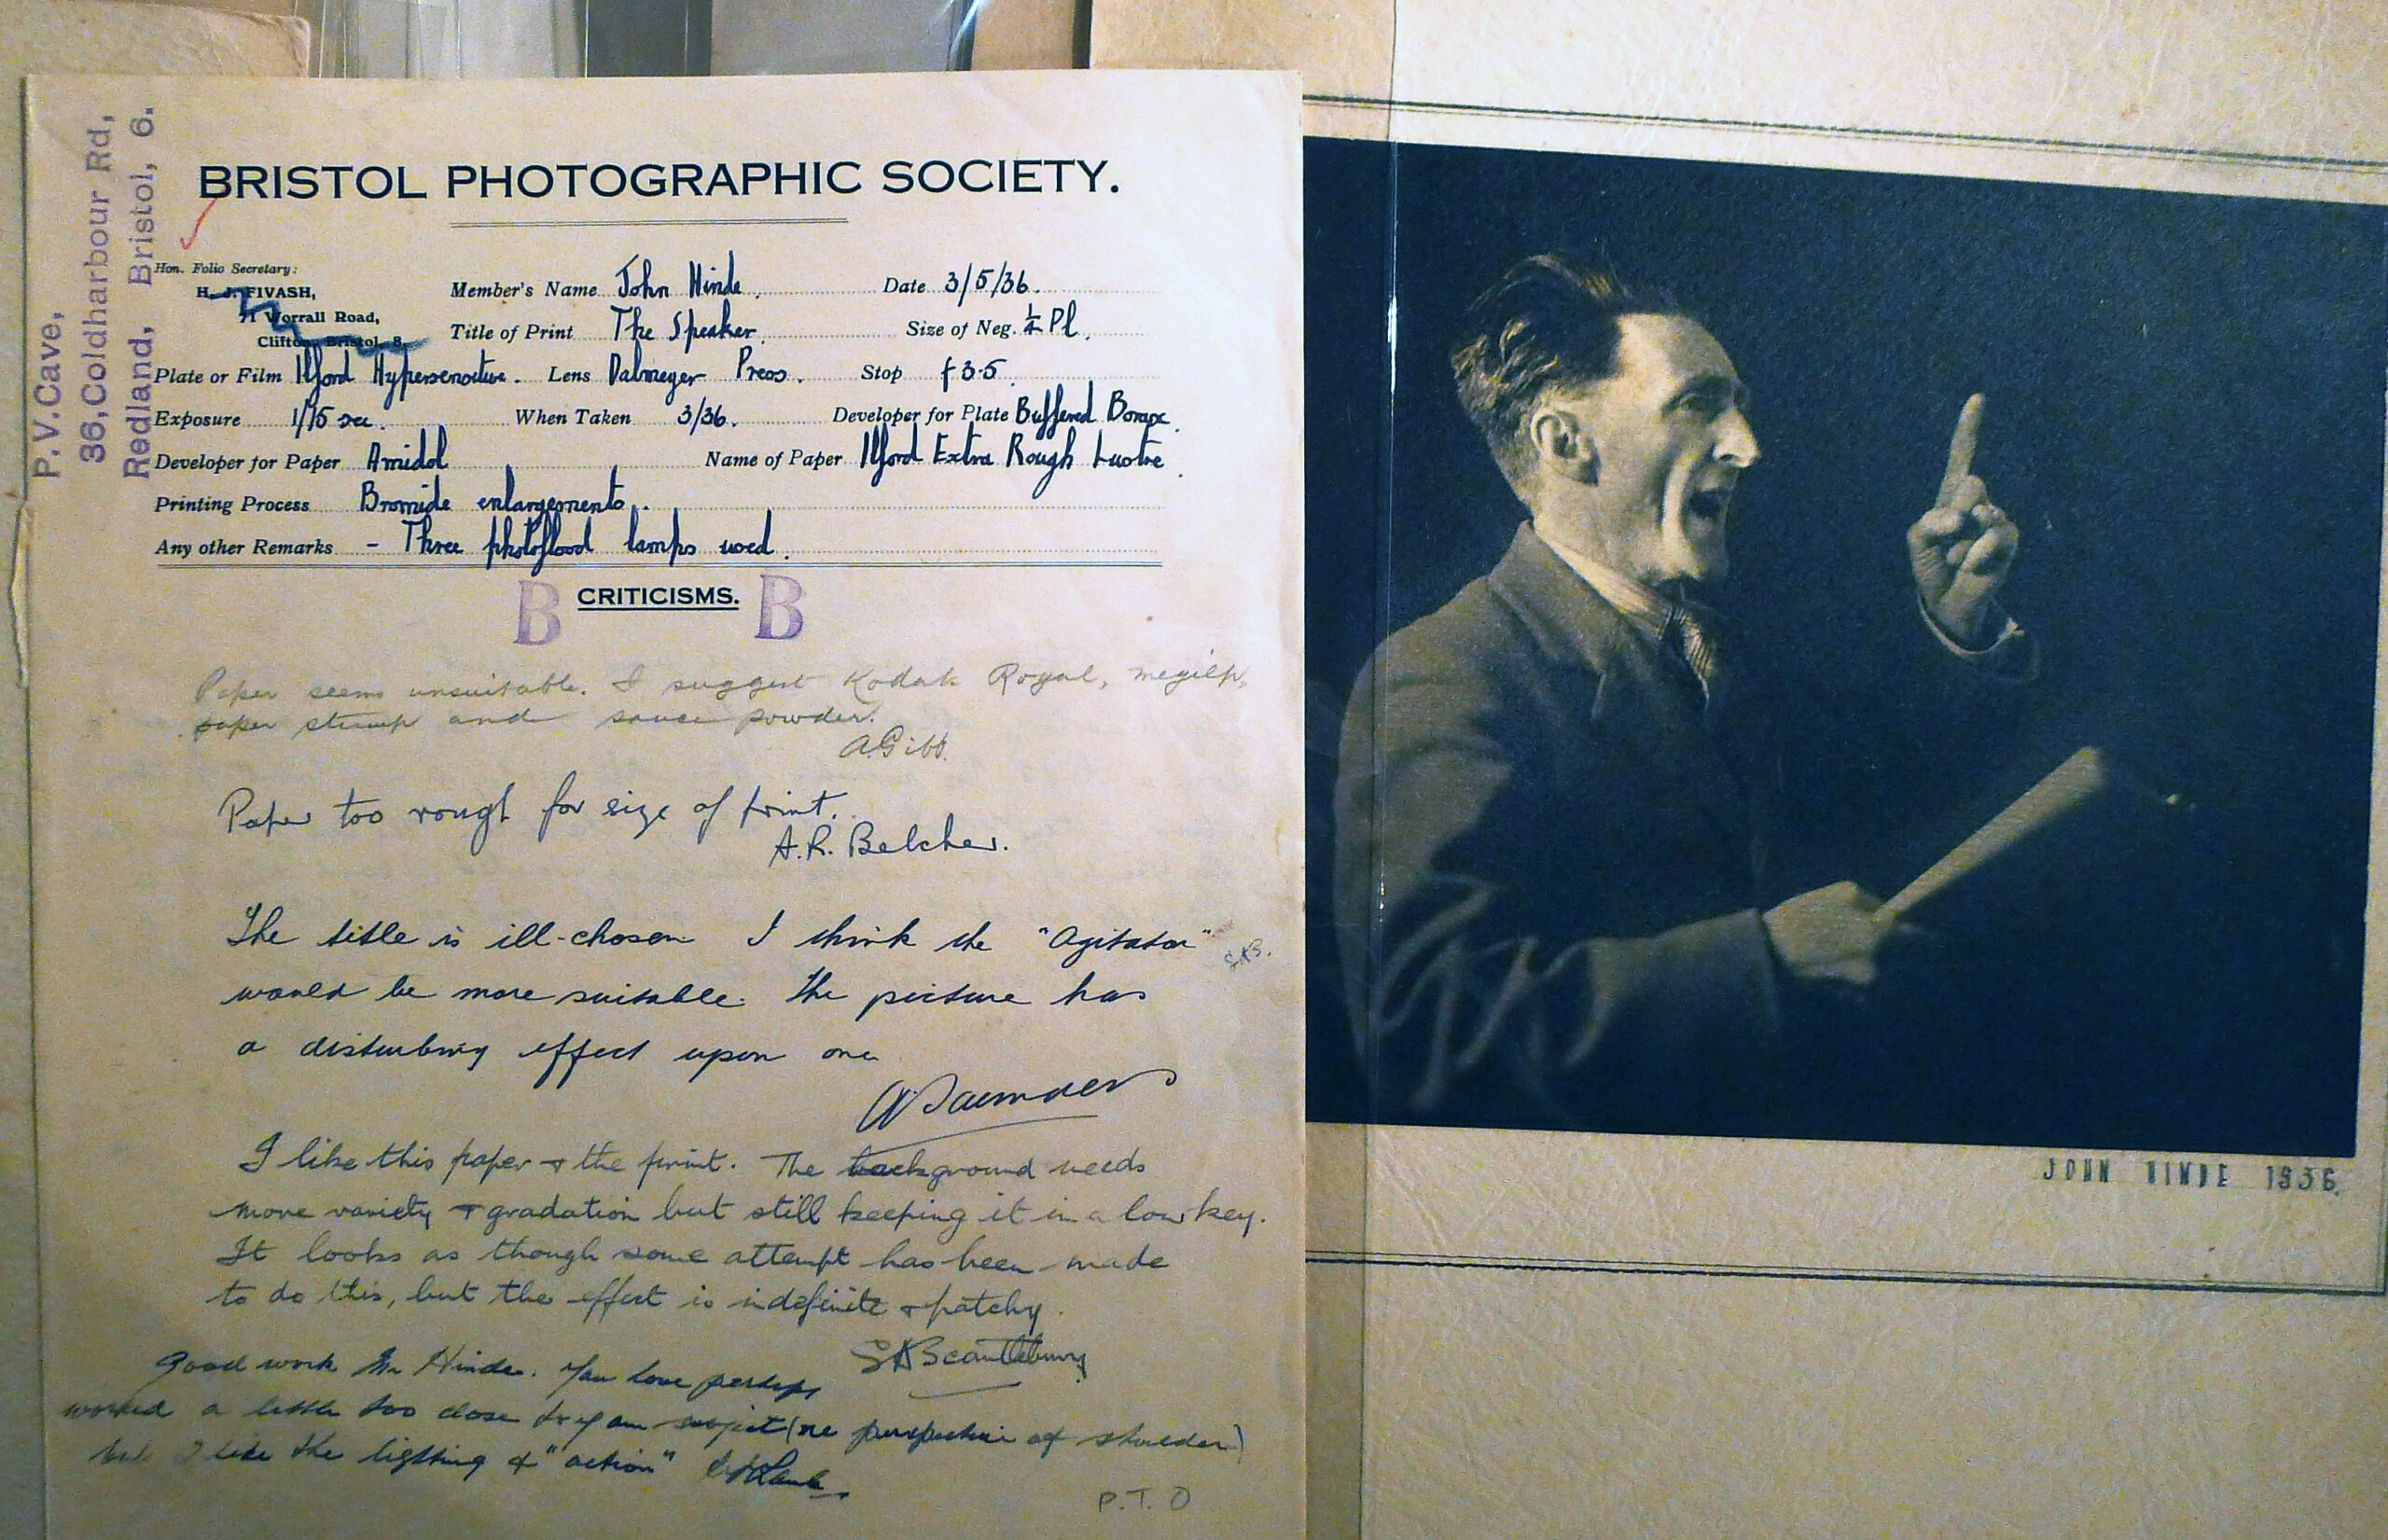 P.V.Cave,
36,Coldharbour Rd,
Redland, Bristol, 6.
BRISTOL PHOTOGRAPHIC SOCIETY.
Hon. Folio Secretary:
H. J. FIVASH,
71 Worrall Road,
Clifton, Bristol, 8.
Member's Name John Hinde. Date 3/5/36.
Title of Print The Speaker. Size of Neg. 1/4 Pl.
Plate or Film Ilford Hypersensitive. Lens Dalmeyer Press. Stop f3.5.
Exposure 1/15 sec. When Taken 3/36. Developer for Plate Buffered Borax.
Developer for Paper Amidol Name of Paper Ilford Extra Rough Lustre.
Printing Process Bromide enlargements.
Any other Remarks - Three photoflood lamps used.
B CRITICISMS. B
Paper seems unsuitable. I suggest Kodak Royal, megilp,
paper stump and sauce powder.
A.Gibb.
Paper too rough for size of print.
A.R. Belcher.
The title is ill-chosen I think the "Agitator" S.K.B.
would be more suitable. The picture has
a disturbing effect upon one
I like this paper & the print. The background needs
more variety & gradation but still keeping it in a low key.
It looks as though some attempt has been made
to do this, but the effect is indefinite & patchy.
SKScantlebury
Good work Mr Hinde. You have perhaps
worked a little too close to your subject (re perspective of shoulder)
but I like the lighting & "action"
P.T.O
JOHN HINDE 1936.